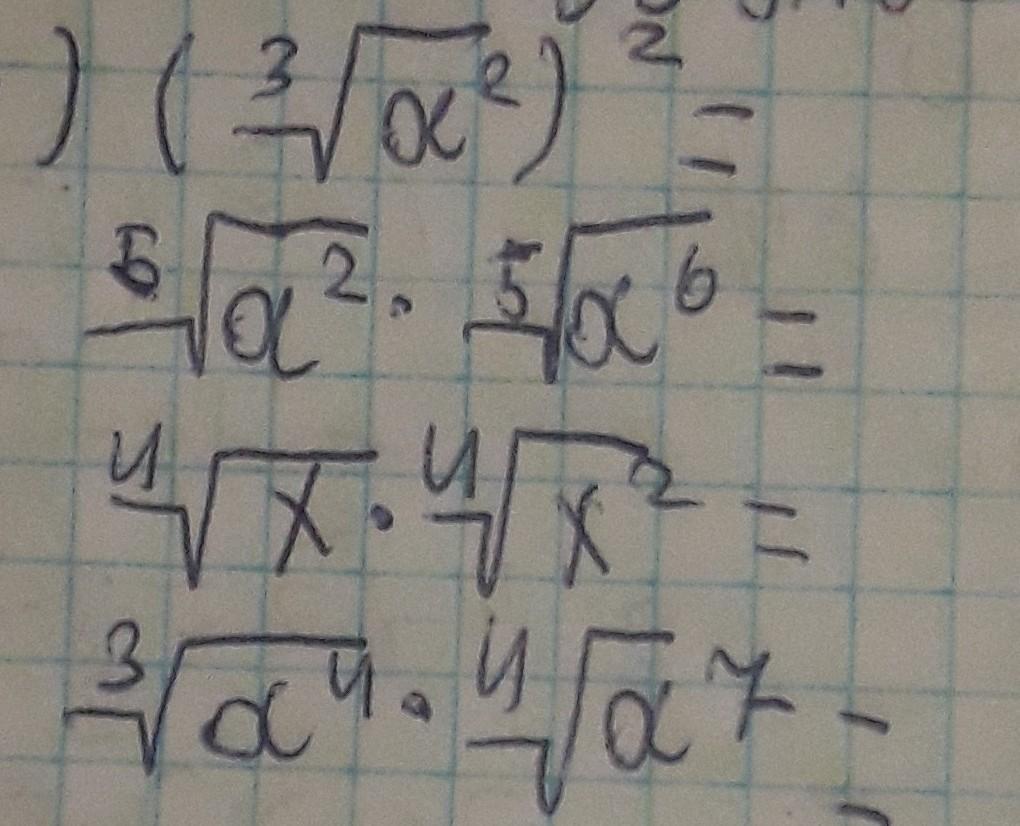 ) (∛a²)² =
⁵√a² · ⁵√a⁶ =
⁴√x · ⁴√x² =
³√a⁴ · ⁴√a⁷ =